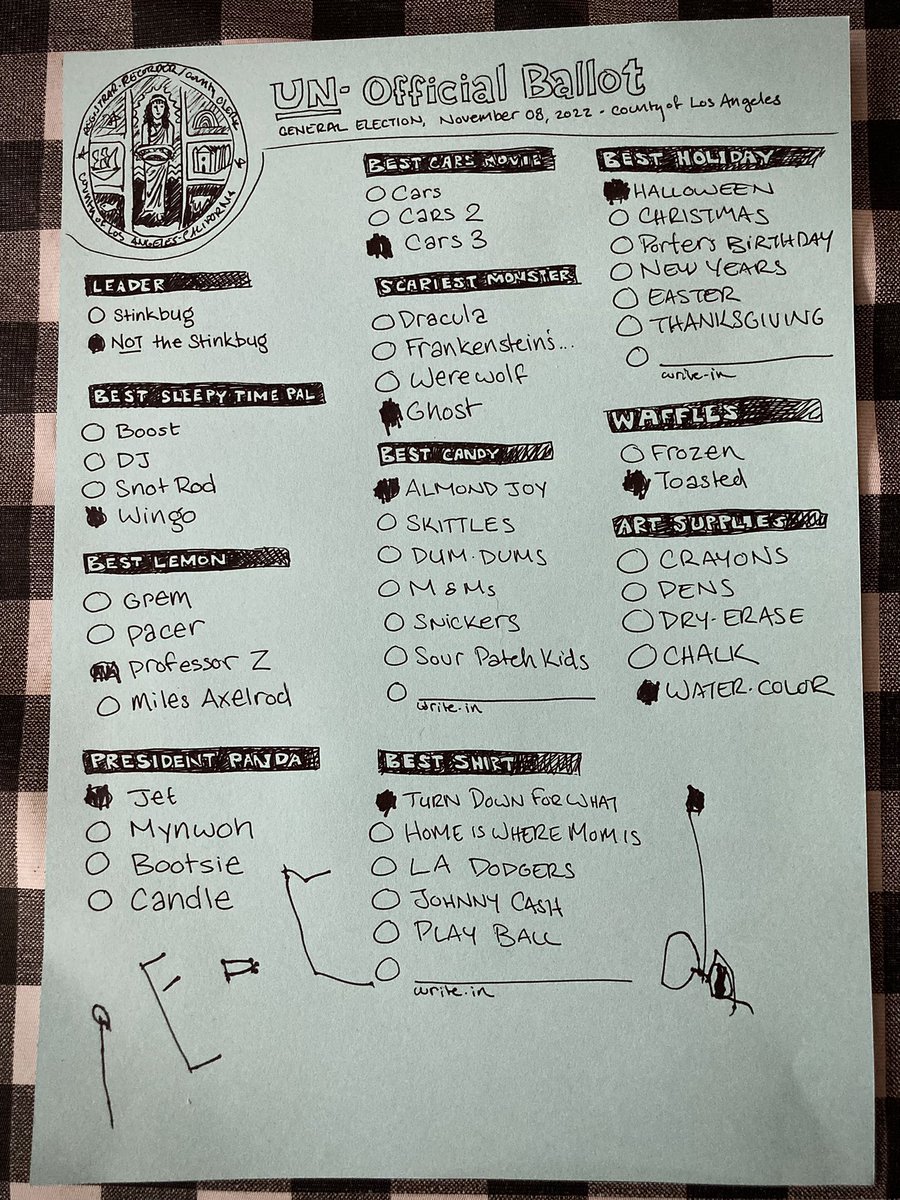 REGISTRAR-RECORDER/COUNTY CLERK
COUNTY OF LOS ANGELES-CALIFORNIA
UN-Official Ballot
GENERAL ELECTION, November 08, 2022 - County of Los Angeles
LEADER
Stinkbug
NOT the Stinkbug
BEST SLEEPY TIME PAL
Boost
DJ
Snot Rod
Wingo
BEST LEMON
Grem
Pacer
Professor Z
Miles Axelrod
PRESIDENT PANDA
Jet
Mynwoh
Bootsie
Candle
BEST CARS MOVIE
Cars
Cars 2
Cars 3
SCARIEST MONSTER
Dracula
Frankenstein's...
Werewolf
Ghost
BEST CANDY
ALMOND JOY
SKITTLES
DUM-DUMS
M&Ms
Snickers
Sour Patch Kids
write-in
BEST SHIRT
TURN DOWN FOR WHAT
HOME IS WHERE MOM IS
LA DODGERS
JOHNNY CASH
PLAY BALL
write-in
BEST HOLIDAY
HALLOWEEN
CHRISTMAS
Porter's BIRTHDAY
NEW YEARS
EASTER
THANKSGIVING
write-in
WAFFLES
Frozen
Toasted
ART SUPPLIES
CRAYONS
PENS
DRY-ERASE
CHALK
WATER-COLOR